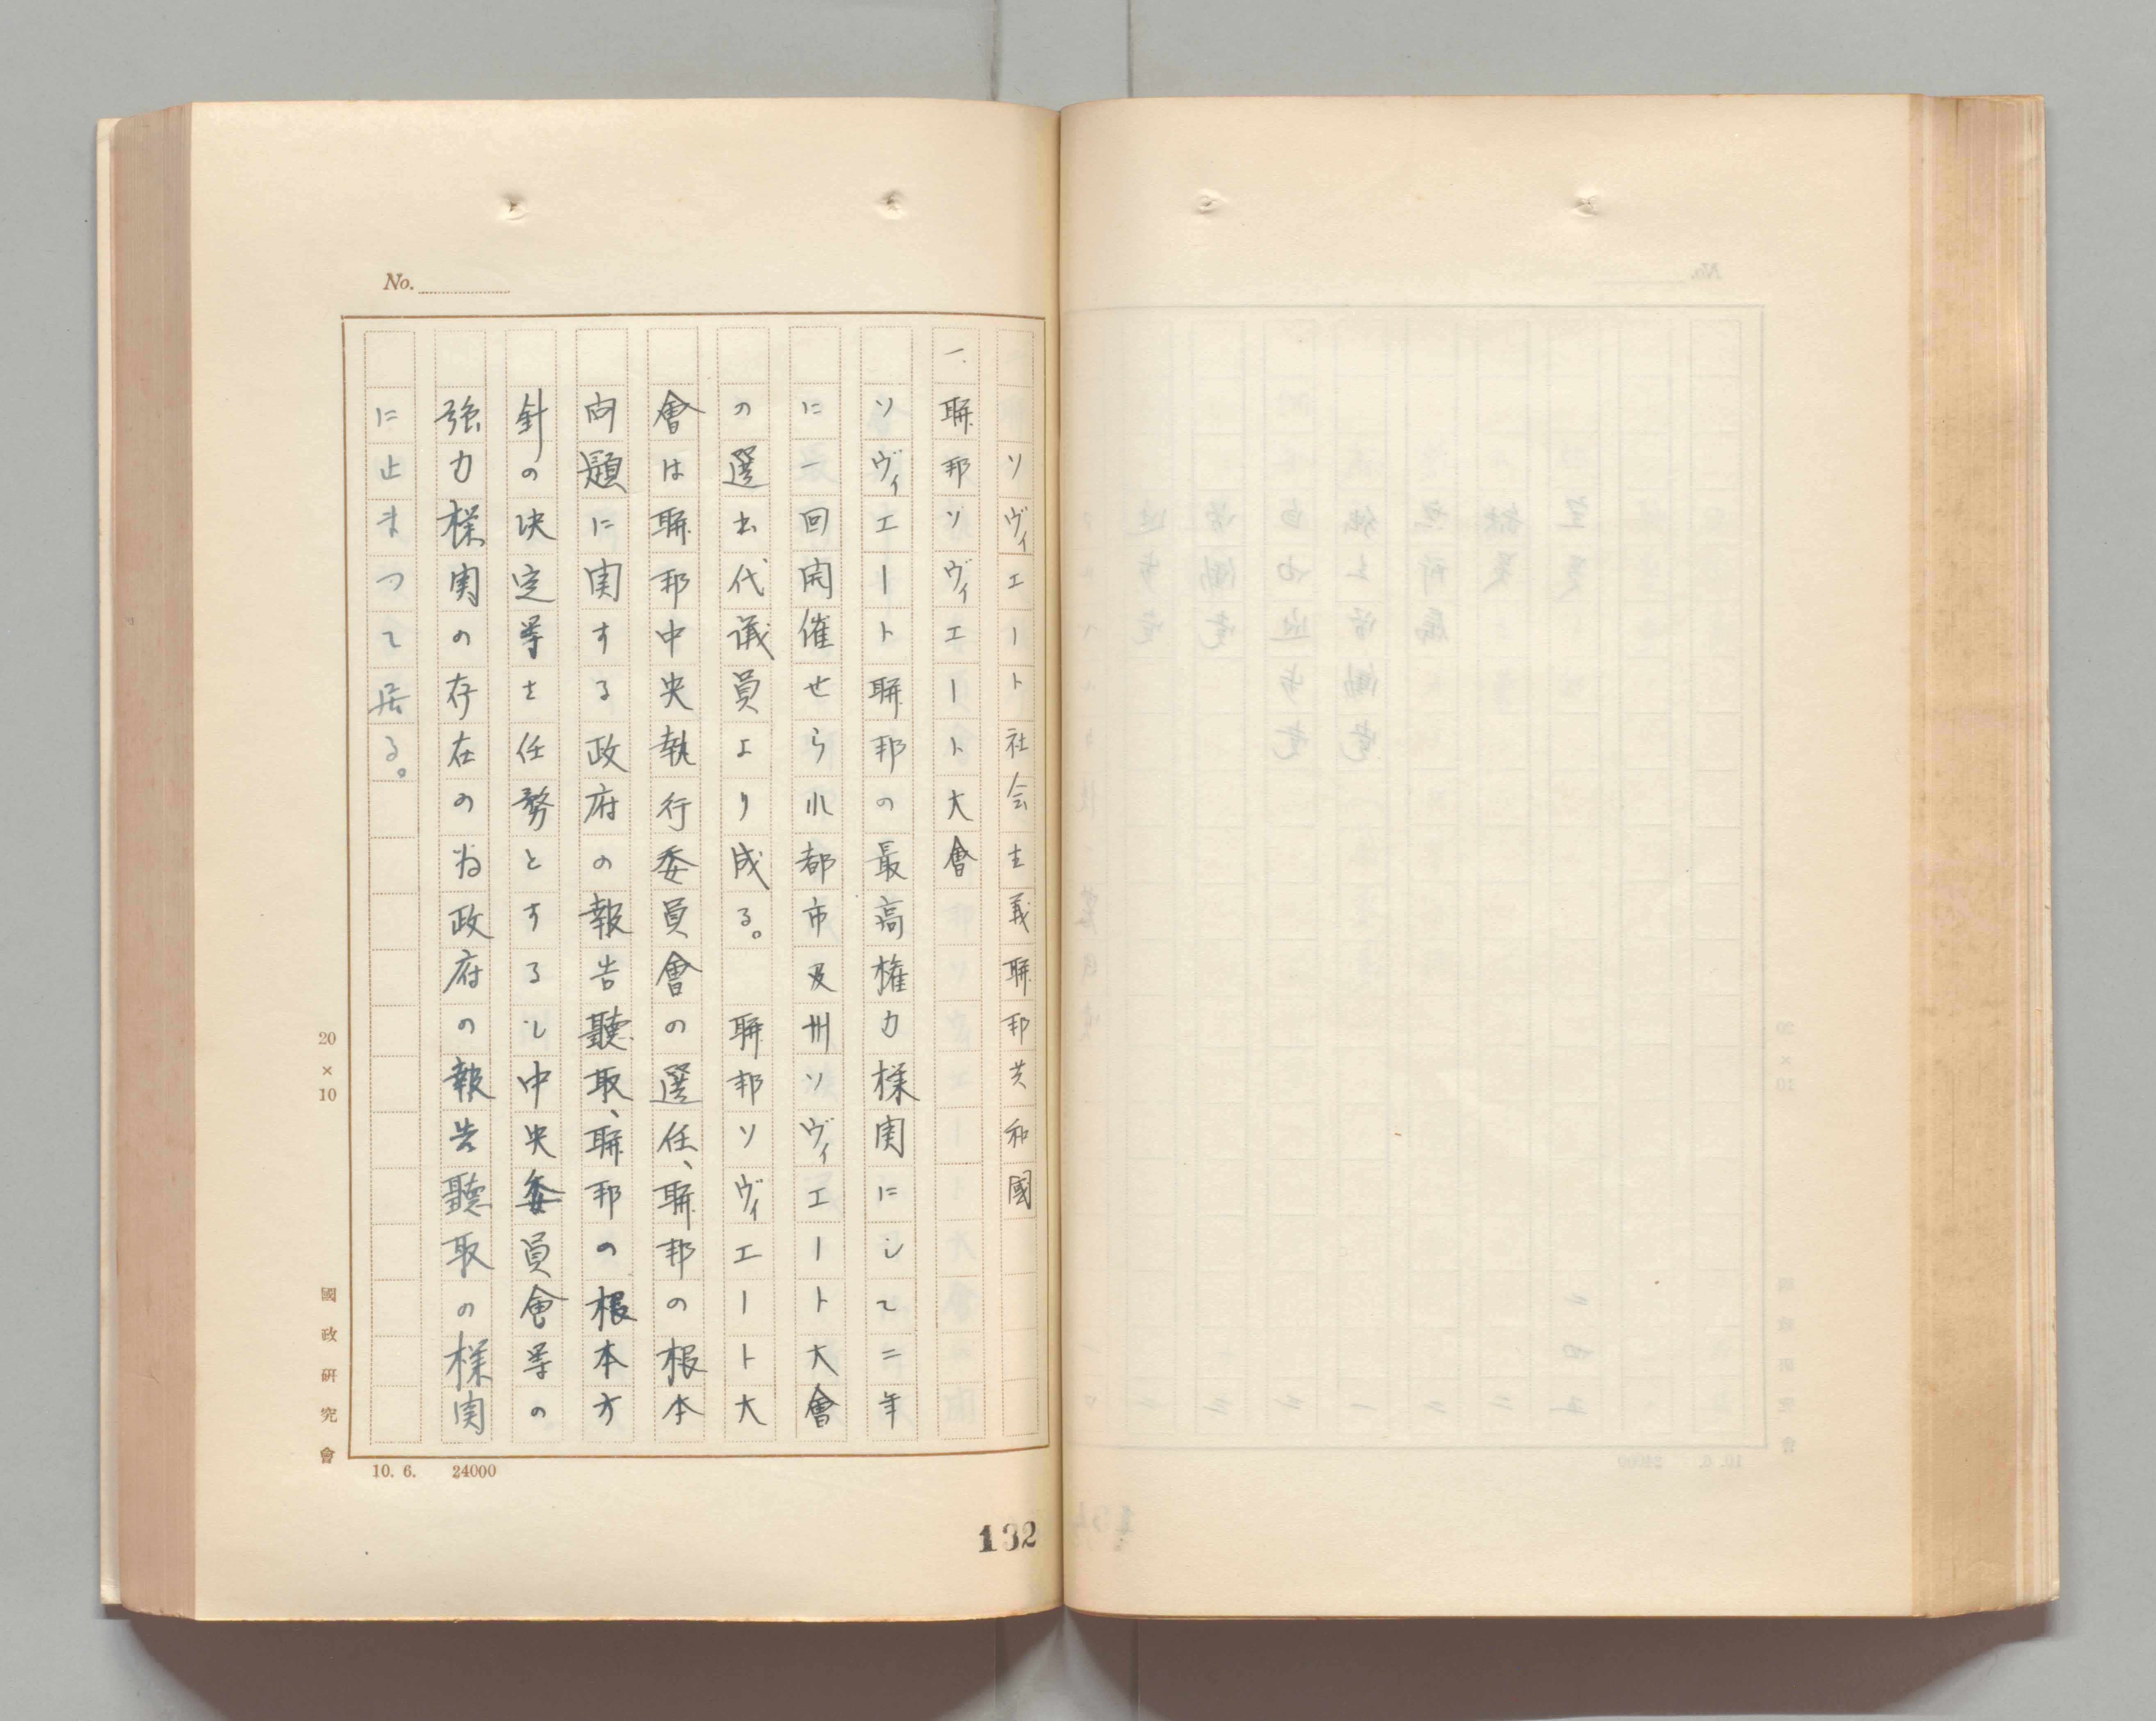 No.
ソヴィエート社会主義聯邦共和國
一.聯邦ソヴィエート大會
ソヴィエート聯邦の最高権力様関にして二年
に一回開催せられ都市及州ソヴィエート大會
の選出代議員より成る。 聯邦ソヴィエート大
會は聯邦中央執行委員會の選任、聯邦の根本
問題に関する政府の報告聽取、聯邦の根本方
針の決定等を任務とするも中央委員会等の
強力様関の存在の為政府の報告聽取の様関
に止まつて居る。
20×10
國政研究會
10. 6. 24000
132